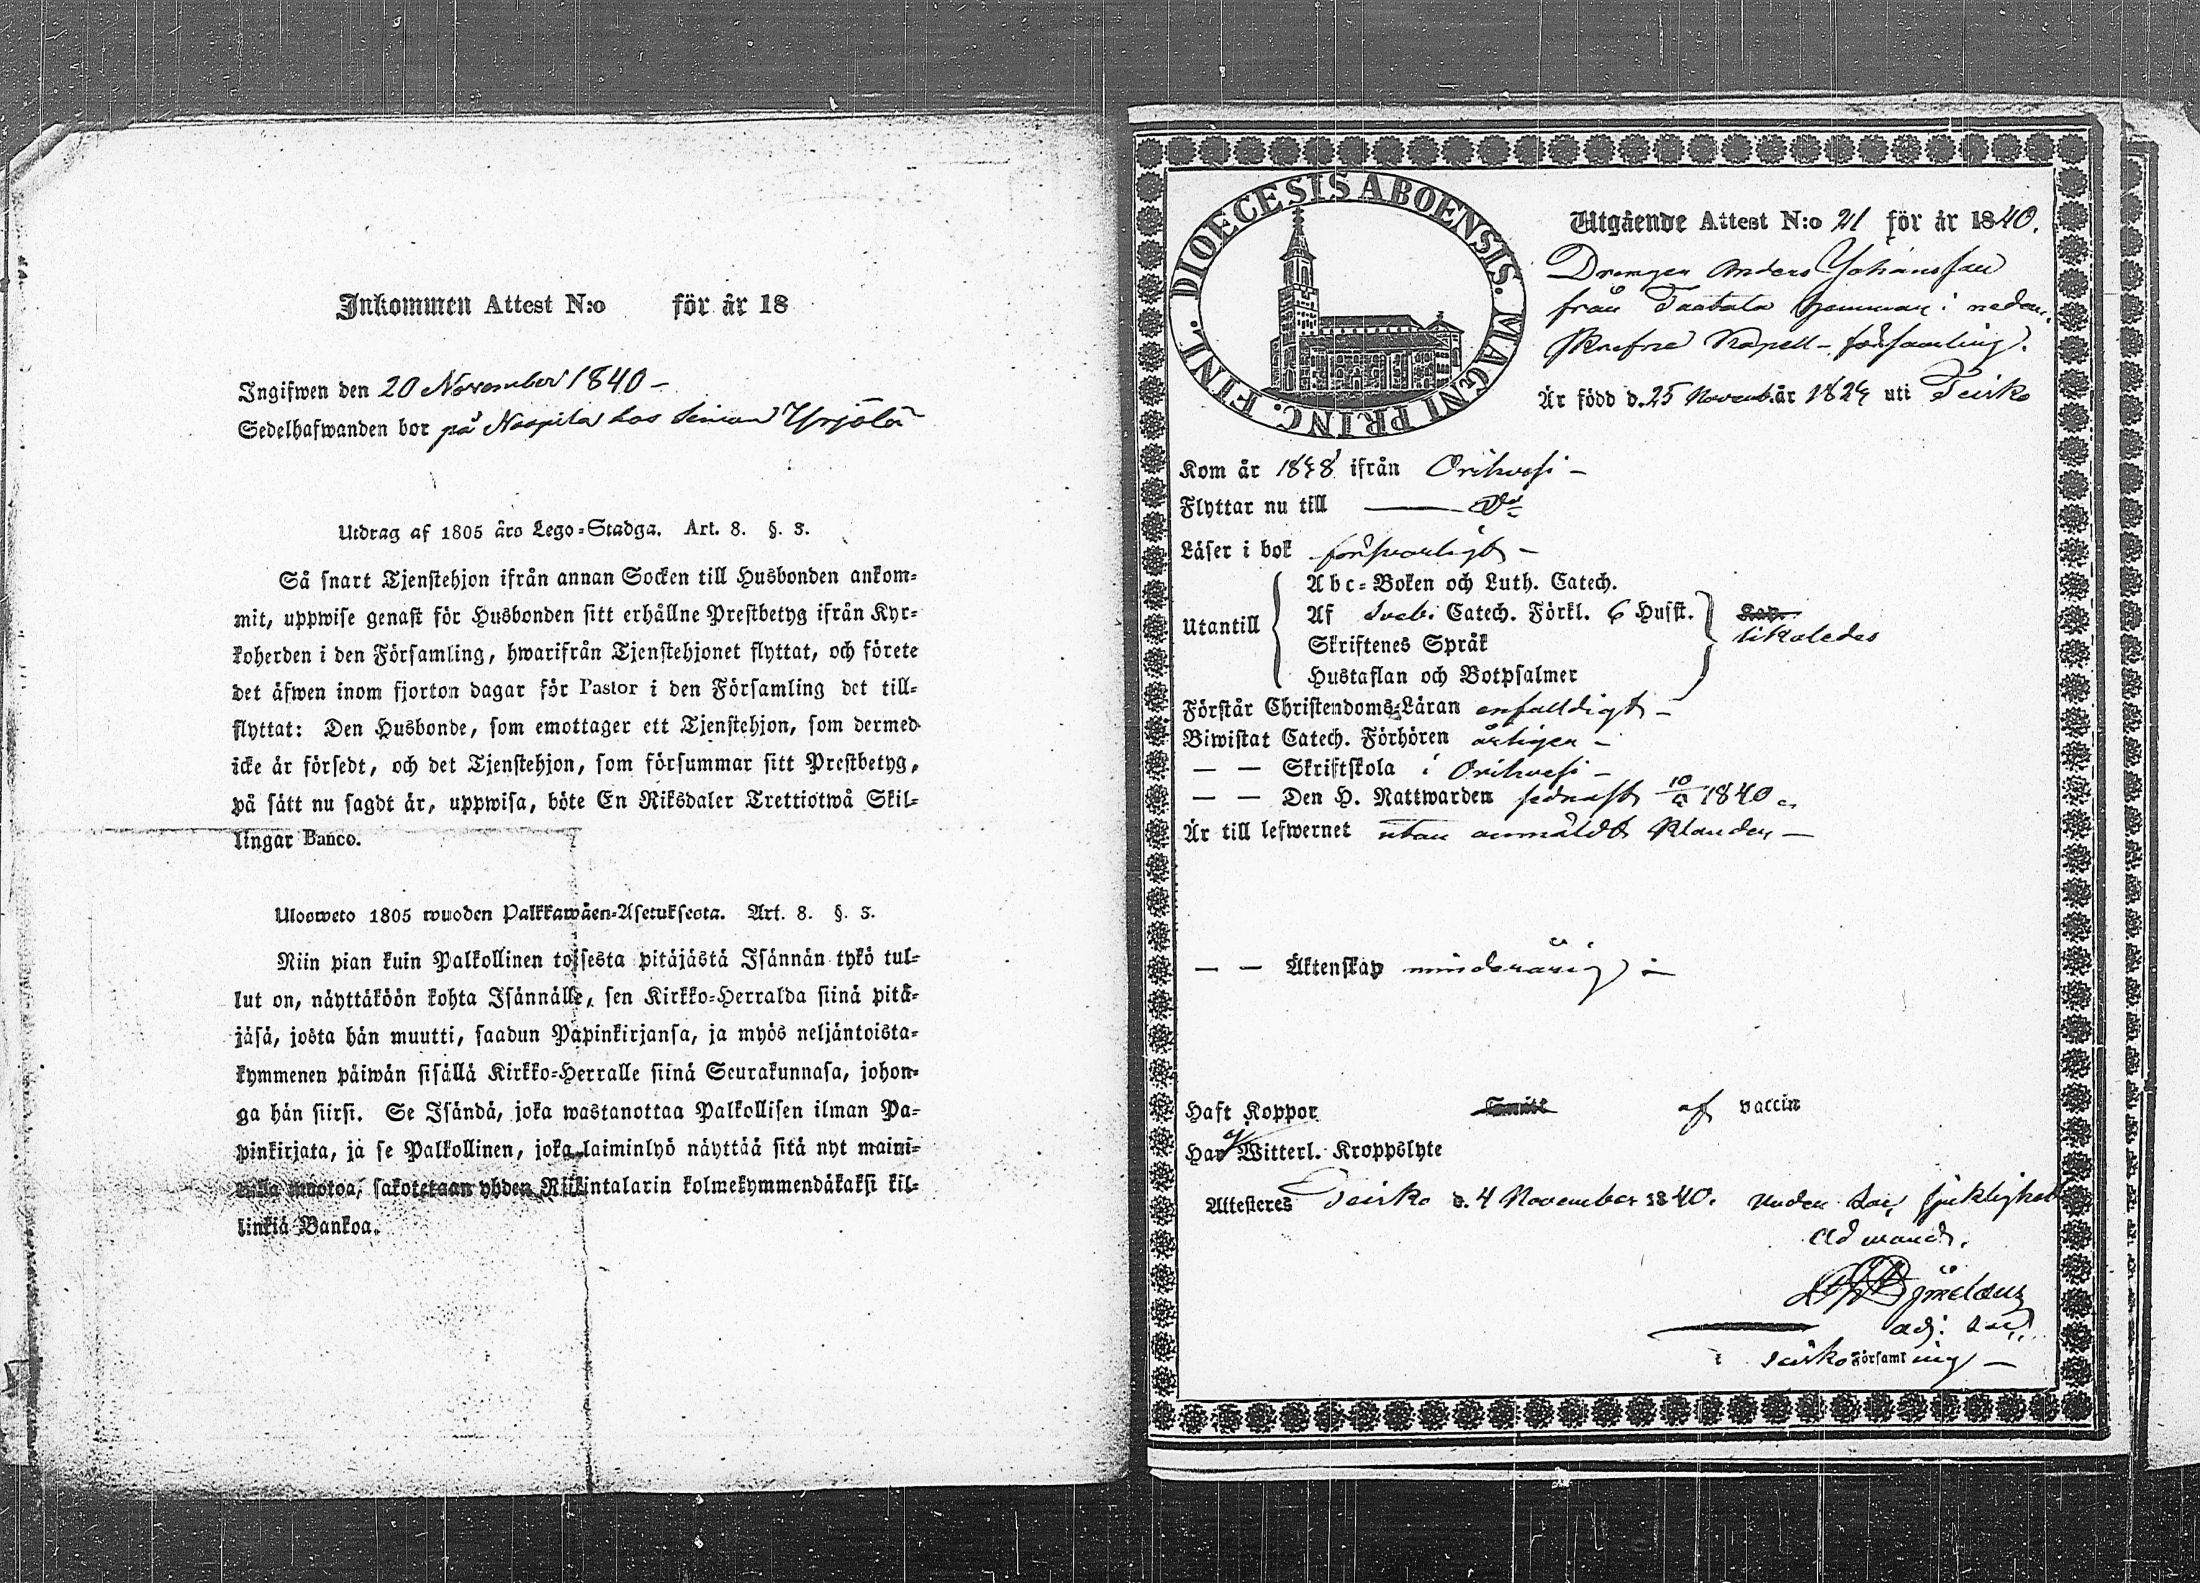 Inkommen Attest N:o för år 18
Ingifwen den 20 November 1840 –
Sedelhafwanden bor på Naapila hos Simon Yrjölä
Utdrag af 1805 års Lego-Stadga. Art. 8. §. 3.
Så snart Tjenstehjon ifrån annan Socken till Husbonden ankom-
mit, uppwise genast för Husbonden sitt erhållne Prestbetyg ifrån Kyr-
koherden i den Församling, hwarifrån Tjenstehjonet flyttat, och förete
det äfwen inom fjorton dagar för Pastor i den Församling det till-
flyttat: Den Husbonde, som emottager ett Tjenstehjon, som dermed
icke är försedt, och det Tjenstehjon, som försummar sitt Prestbetyg,
på sätt nu sagdt är, uppwisa, böte En Riksdaler Trettiotwå Skil-
lingar Banco.
Ulosweto 1805 wuoden Palkkawäen-Asetuksesta. Art. 8. §. 3.
Niin pian kuin Palkollinen toisesta pitäjästä Isännän tykö tul-
lut on, näyttäköön kohta Isännälle, sen Kirkko-Herralda siinä pitä-
jäsä, josta hän muutti, saadun Papinkirjansa, ja myös neljäntoista-
kymmenen päiwän sisällä Kirkko-Herralle siinä Seurakunnasa, johon-
ga hän siirsi. Se Isändä, joka wastanottaa Palkollisen ilman Pa-
pinkirjata, ja se Palkollinen, joka laiminlyö näyttää sitä nyt maini-
tulla muotoa, sakotetaan yhden Riikintalarin kolmekymmendäkaksi kil-
linkiä Bankoa.
DIOECESIS ABOENSIS. MAGNI PRINC. FINL.
Utgående Attest N:o 21 för år 1840.
Drengen Anders Johansson
från Taatala hemman i nedan-
skrefne Kapell-församling.
Är född d. 25 Novemb. år 1824 uti Teisko
Kom år 1838 ifrån Orihvesi –
Flyttar nu till — Do
Läser i bok försvarligt –
Utantill
Abc-Boken och Luth. Catech.
Af Sveb. Catech. Förkl. 6 Hufst.
Skriftenes Språk
Hustaflan och Botpsalmer
likaledes
Förstår Christendoms-Läran enfalldigt –
Biwistat Catech. Förhören årligen –
— — Skriftskola i Orihvesi –
— — Den H. Nattwarden sednast 1840
Är till lefwernet utan anmäldt klander –
— — Äktenskap minderårig –
Haft Koppor af vaccin
Har ej Witterl. Kroppslyte
Attesteres Teisko d. 4 November 1840. under Sac. sjuklighet
Ad mand.
adj. Sac.
i Teisko Församling –